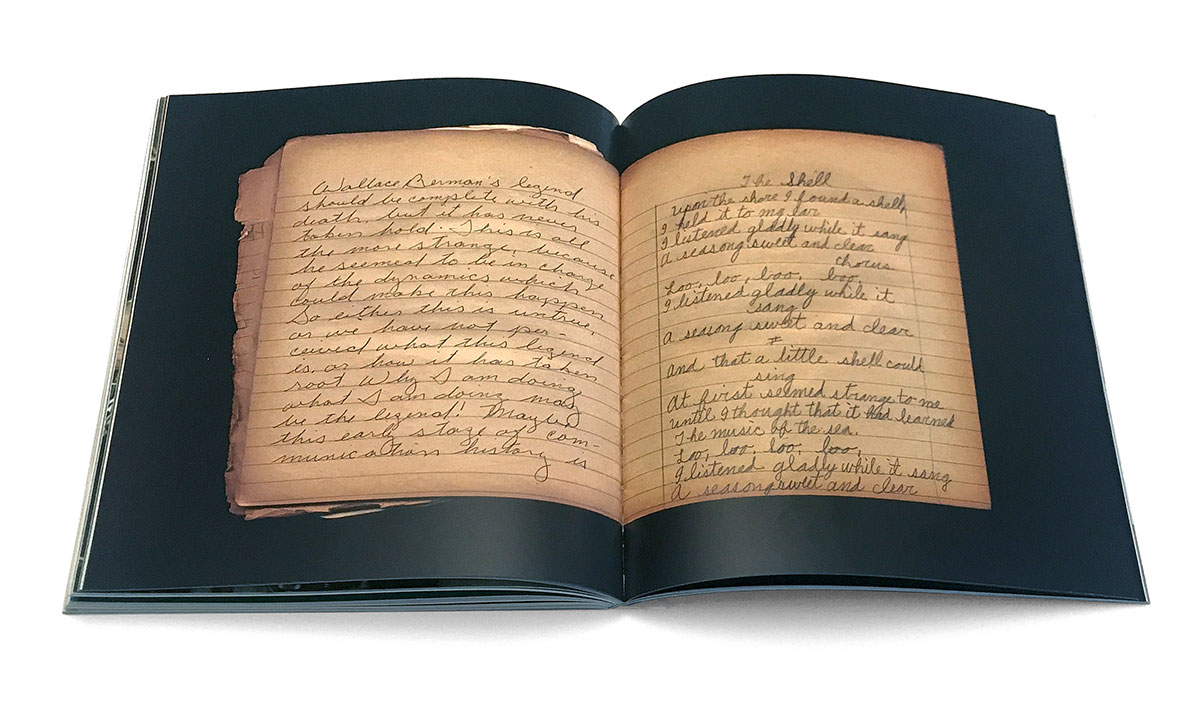 Wallace Berman's legend
should be complete with his
death, but it has never
taken hold. This is all
the more strange, because
he seemed to be in charge
of the dynamics which
could make this happen
So either this is untrue,
or we have not per
ceived what this legend
is, or how it has taken
root Why I am doing
what I am doing may
be the legend! Maybe
this early stage of com-
munications history is
The Shell
upon the shore I found a shell,
I held it to my ear
I listened gladly while it sang
A seasong sweet and clear
Chorus
Loo, loo, loo, loo
I listened gladly while it
sang
A seasong sweet and clear
And that a little shell could
sing
At first seemed strange to me
until I thought that it had learned
The music of the sea.
Loo, loo, loo, loo,
I listened gladly while it sang
A seasong sweet and clear